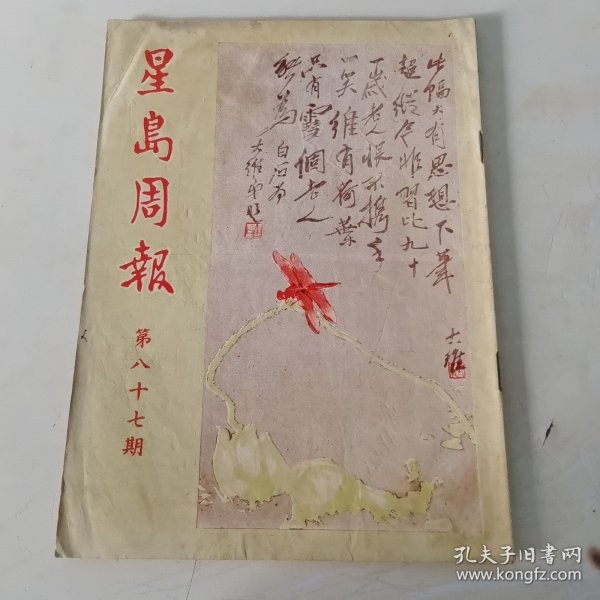 星島周報
第八十七期
此幅大有思想下筆
超縱令非習比九十
一歲老人恨不攜手
一笑維有荷葉
只有霞個老人
白石為
大維
大維
孔夫子旧书网
www.kongfz.com